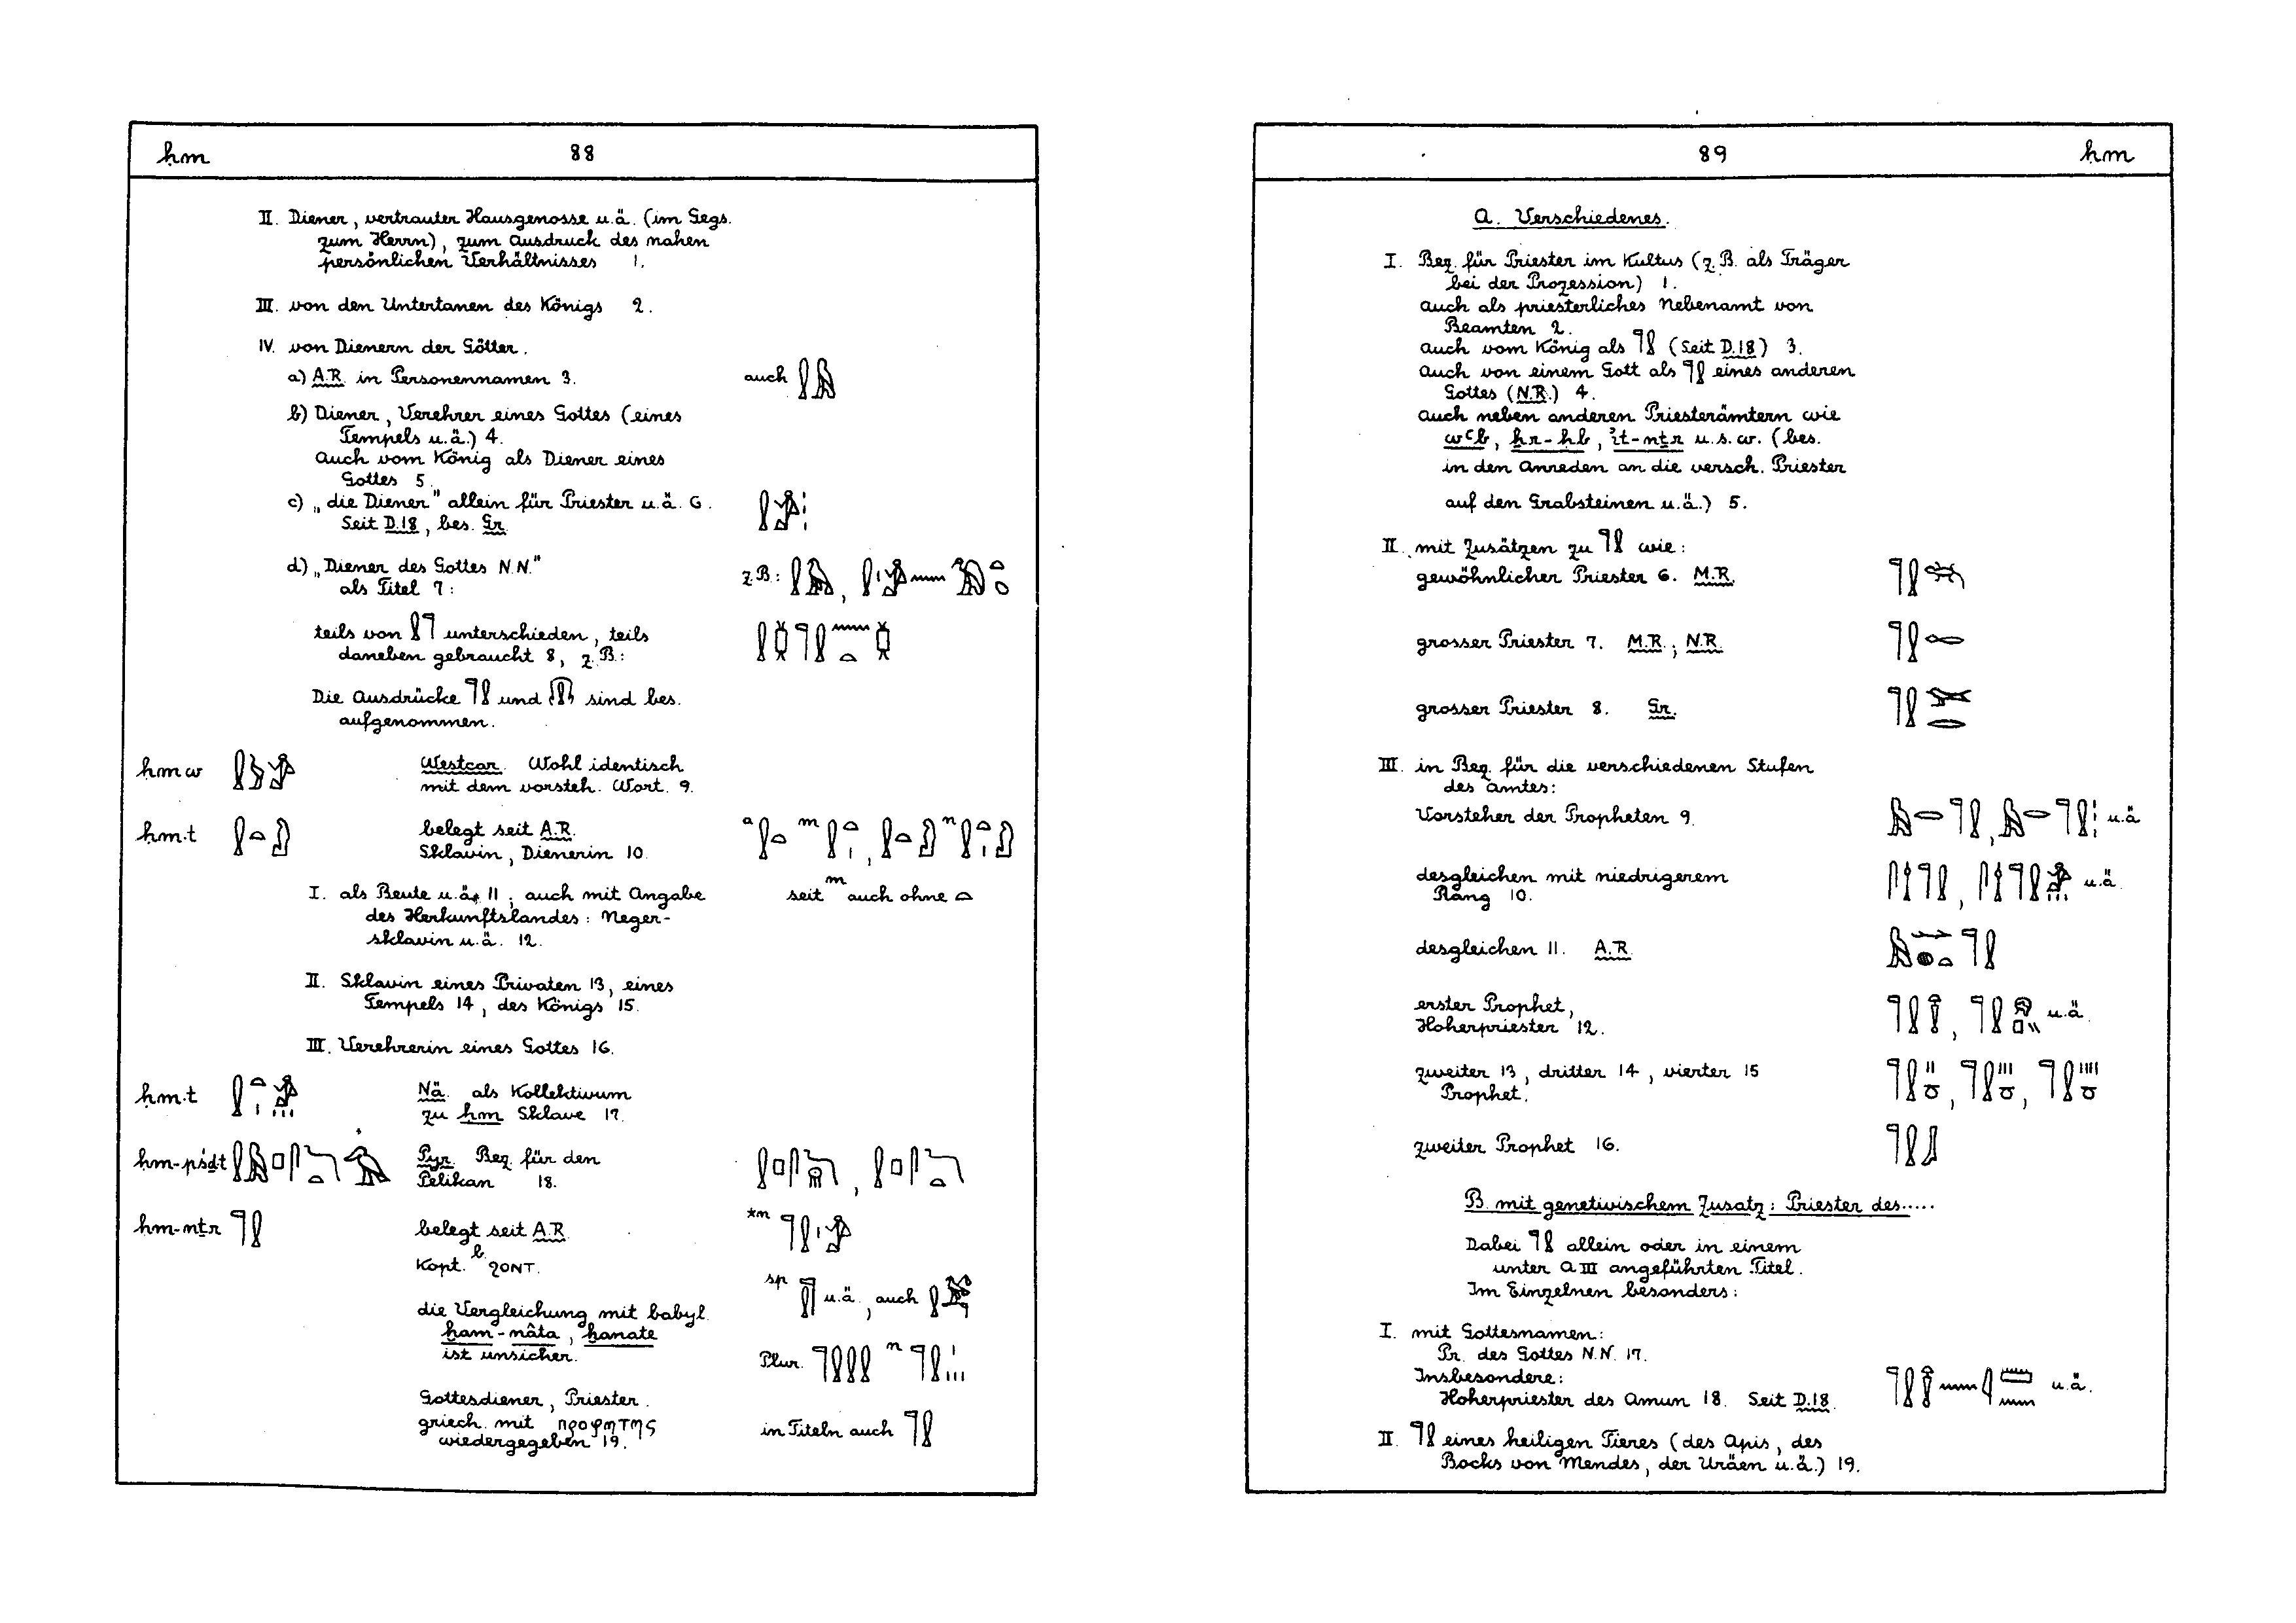 ḥm 88
II. Diener, vertrauter Hausgenosse u.ä. (im Gegs.
zum Herrn), zum Ausdruck des nahen
persönlichen Verhältnisses 1.
III. von den Untertanen des Königs 2.
IV. von Dienern der Götter.
a) A.R. in Personennamen 3. auch
b) Diener, Verehrer eines Gottes (eines
Tempels u.ä.) 4.
auch vom König als Diener eines
Gottes 5.
c) „die Diener" allein für Priester u.ä. 6.
Seit D.18, bes. Gr.
d) „Diener des Gottes N.N."
als Titel 7: z.B.: ,
teils von 𓍛𓊹 unterschieden, teils
daneben gebraucht 8, z.B.:
Die Ausdrücke 𓊹𓍛 und sind bes.
aufgenommen.
ḥmw Westcar. Wohl identisch
mit dem vorsteh. Wort. 9.
ḥm.t belegt seit A.R.
Sklavin, Dienerin 10.
I. als Beute u.ä. 11; auch mit Angabe seit m auch ohne 𓏏
des Herkunftslandes: Neger-
sklavin u.ä. 12.
II. Sklavin eines Privaten 13, eines
Tempels 14, des Königs 15.
III. Verehrerin eines Gottes 16.
ḥm.t Nä. als Kollektivum
zu ḥm Sklave 17.
ḥm-pśḏ.t Pyr. Bez. für den
Pelikan 18.
ḥm-nṯr 𓊹𓍛 belegt seit A.R.
Kopt. b ϩONT.
sp u.ä., auch
die Vergleichung mit babyl.
ḫam-nâta, ḫanate
ist unsicher.
Plur. 𓊹𓍛𓍛𓍛 n
Gottesdiener, Priester.
griech. mit προφητης in Titeln auch 𓊹𓍛
wiedergegeben 19.
89 ḥm
A. Verschiedenes.
I. Bez. für Priester im Kultus (z.B. als Träger
bei der Prozession) 1.
auch als priesterliches Nebenamt von
Beamten 2.
auch vom König als 𓊹𓍛 (Seit D.18) 3.
auch von einem Gott als 𓊹𓍛 eines anderen
Gottes (N.R.) 4.
auch neben anderen Priesterämtern wie
wꜥb, ẖr-ḥb, ꞽt-nṯr u.s.w. (bes.
in den Anreden an die versch. Priester
auf den Grabsteinen u.ä.) 5.
II. mit Zusätzen zu 𓊹𓍛 wie:
gewöhnlicher Priester 6. M.R.
grosser Priester 7. M.R.; N.R. 𓊹𓍛𓉻
grosser Priester 8. Gr. 𓊹𓍛𓅨𓂋
III. in Bez. für die verschiedenen Stufen
des Amtes:
Vorsteher der Propheten 9. u.ä.
desgleichen mit niedrigerem
Rang 10. u.ä.
desgleichen 11. A.R.
erster Prophet,
Hoherpriester 12. u.ä.
zweiter 13, dritter 14, vierter 15
Prophet.
zweiter Prophet 16.
B. mit genetivischem Zusatz: Priester des.....
Dabei 𓊹𓍛 allein oder in einem
unter A III angeführten Titel.
Im Einzelnen besonders:
I. mit Gottesnamen:
Pr. des Gottes N.N. 17.
Insbesondere:
Hoherpriester des Amun 18. Seit D.18. u.ä.
II. 𓊹𓍛 eines heiligen Tieres (des Apis, des
Bocks von Mendes, der Uräen u.ä.) 19.